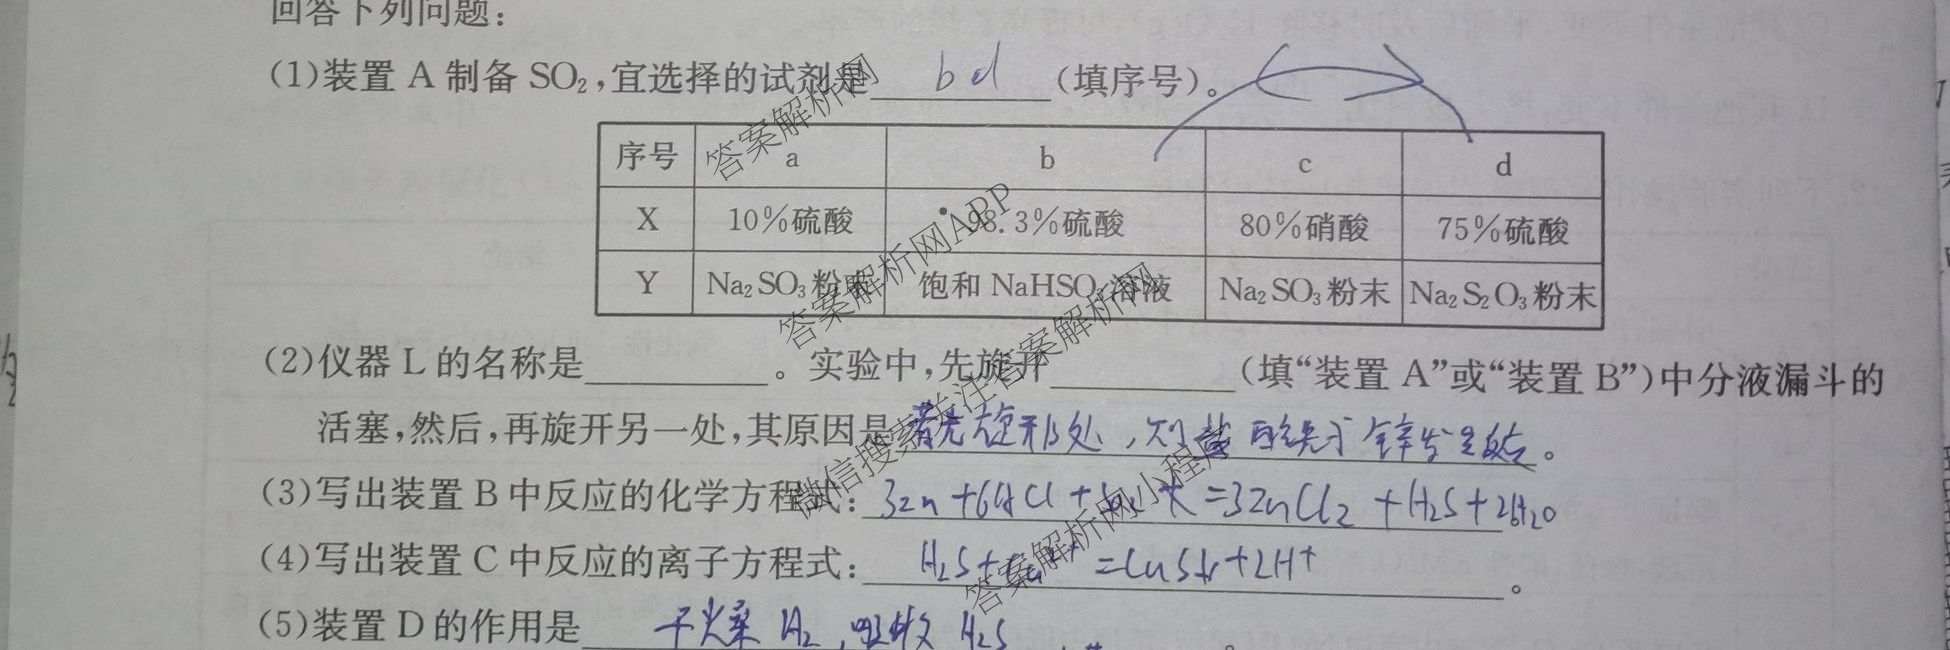 回答下列问题:
(1)装置 A 制备 SO₂,宜选择的试剂是 bd (填序号)。
序号 a b c d
X 10%硫酸 98.3%硫酸 80%硝酸 75%硫酸
Y Na₂SO₃粉末 饱和 NaHSO₃溶液 Na₂SO₃粉末 Na₂S₂O₃粉末
(2)仪器 L 的名称是________。实验中,先旋开________(填“装置 A”或“装置 B”)中分液漏斗的
活塞,然后,再旋开另一处,其原因是 先旋开B处,则
(3)写出装置 B 中反应的化学方程式: 3Zn+6HCl+ =3ZnCl₂+H₂S+2H₂O
(4)写出装置 C 中反应的离子方程式: H₂S+ =CuS↓+2H⁺ 。
(5)装置 D 的作用是 干燥 H₂,吸收 H₂S
答案解析网
答案解析网APP
微信搜索关注答案解析网
答案解析网小程序